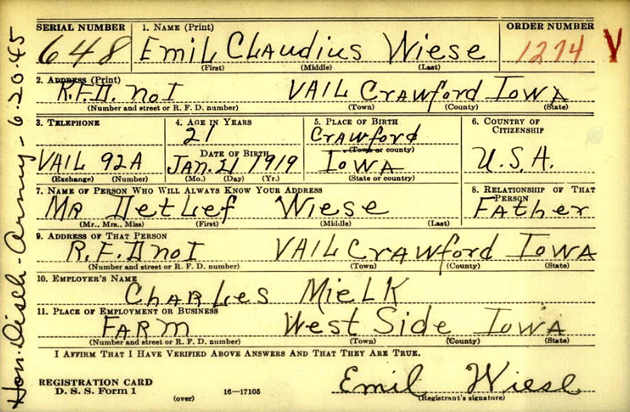 SERIAL NUMBER 1. NAME (Print) ORDER NUMBER
648 EMIL CLAUDIUS WIESE 1274 V
(First) (Middle) (Last)
2. ADDRESS (Print)
R.F.D. NO I VAIL CRAWFORD IOWA
(Number and street or R. F. D. number) (Town) (County) (State)
3. TELEPHONE 4. AGE IN YEARS 5. PLACE OF BIRTH 6. COUNTRY OF CITIZENSHIP
21 CRAWFORD
DATE OF BIRTH (Town or county)
VAIL 92A JAN. 21 1919 IOWA U.S.A.
(Exchange) (Number) (Mo.) (Day) (Yr.) (State or country)
7. NAME OF PERSON WHO WILL ALWAYS KNOW YOUR ADDRESS 8. RELATIONSHIP OF THAT PERSON
MR DETLEF WIESE FATHER
(Mr., Mrs., Miss) (First) (Middle) (Last)
9. ADDRESS OF THAT PERSON
R.F.D NO I VAIL CRAWFORD IOWA
(Number and street or R. F. D. number) (Town) (County) (State)
10. EMPLOYER'S NAME
CHARLES MIELK
11. PLACE OF EMPLOYMENT OR BUSINESS
FARM WEST SIDE IOWA
(Number and street or R. F. D. number) (Town) (County) (State)
I AFFIRM THAT I HAVE VERIFIED ABOVE ANSWERS AND THAT THEY ARE TRUE.
REGISTRATION CARD
D. S. S. Form 1 16—17105 Emil Wiese
(over) (Registrant's signature)
Hon. Disch - Army - 6-20-45